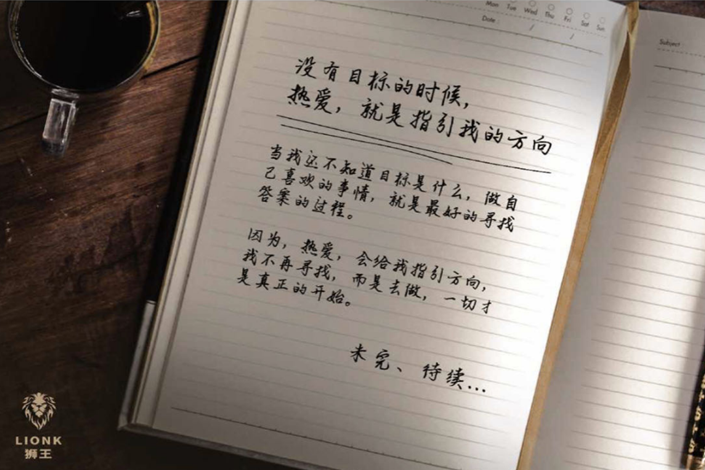 Mon Tue Wed Thu Fri Sat Sun
Date: / /
Subject
没有目标的时候，
热爱，就是指引我的方向
当我还不知道目标是什么，做自
己喜欢的事情，就是最好的寻找
答案的过程。
因为，热爱，会给我指引方向，
我不再寻找，而是去做，一切才
是真正的开始。
未完、待续...
LIONK
狮王